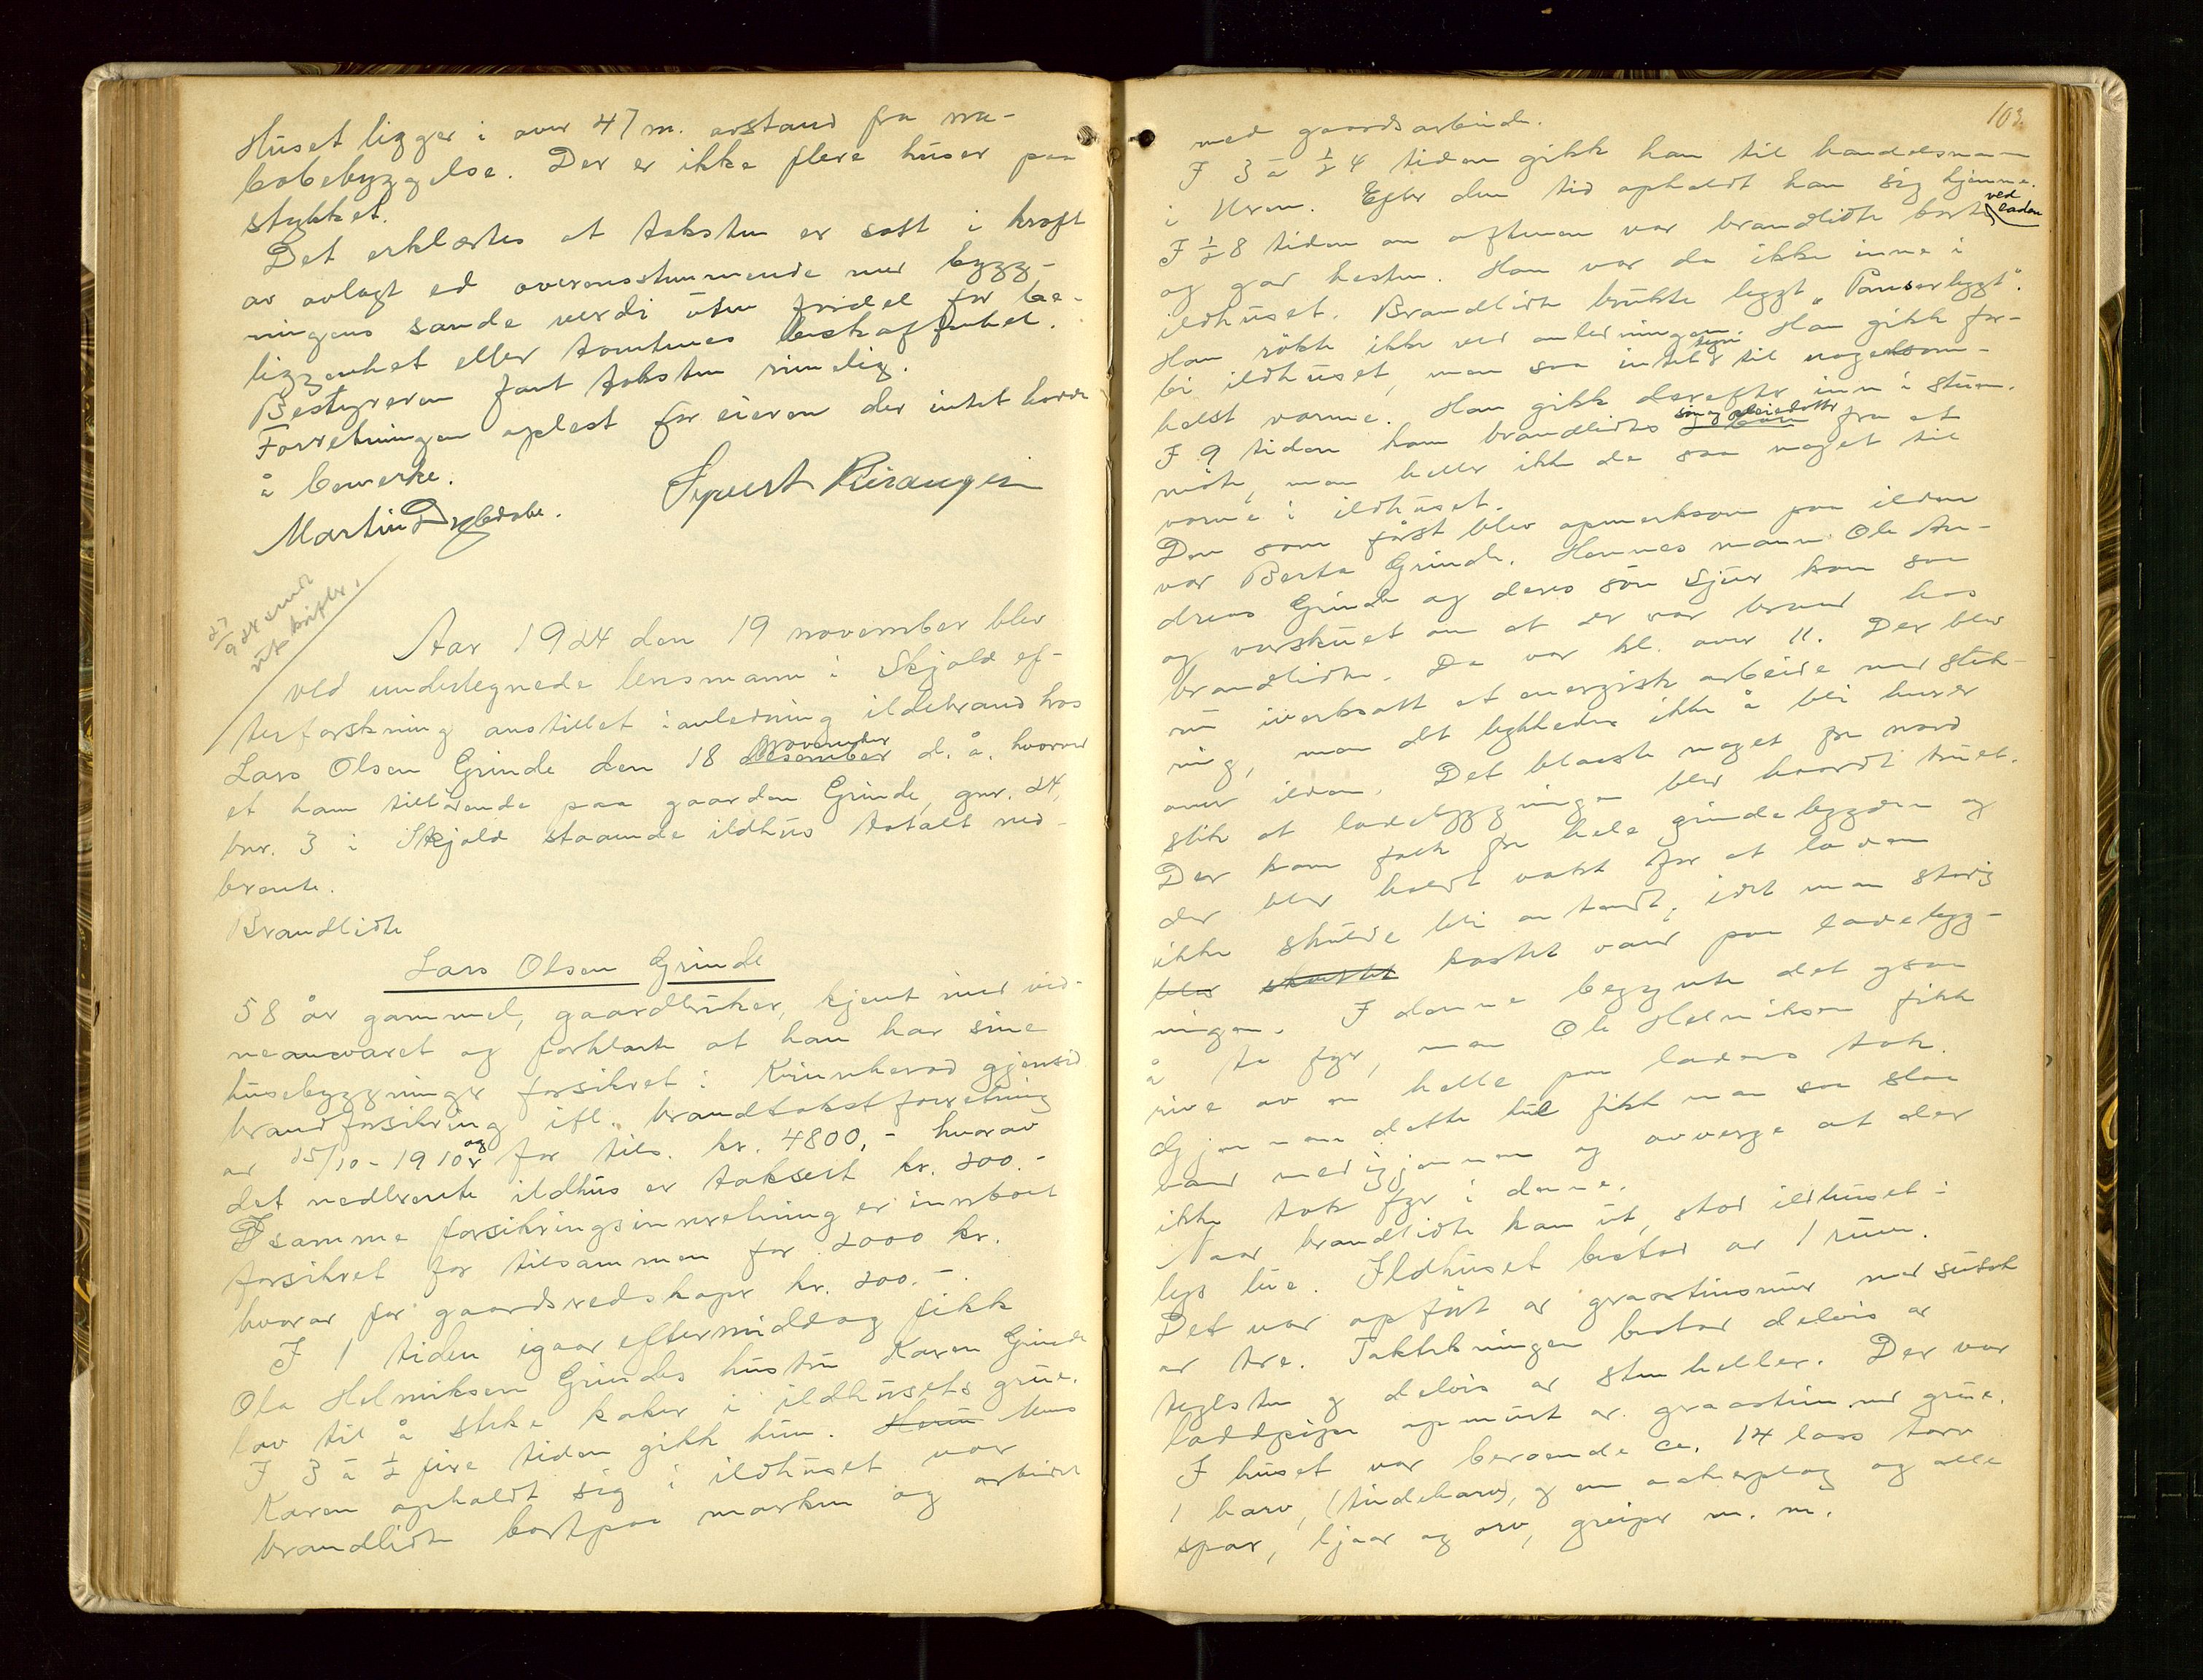 Huset ligger i over 47 m. avstand fra na-
bobebyggelse. Der er ikke flere huser paa
stykket.
Det erklærtes at taksten er satt i kraft
av avlagt ed overensstemmende med bygg-
ningens sande verdi uten fradel for be-
liggenhet eller tomtenes beskaffenhet.
Bestyreren fant taksten rimelig.
Forretningen oplest for eieren der intet havde
å bemerke.
Syvert
Martin
sendt
utskrifter.
Aar 1924 den 19 november blev
ved undertegnede lensmann i Skjold ef-
terforskning anstillet i anledning ildebrand hos
Lars Olsen Grinde den 18 desember november d. å. hvorved
et ham tilhørende paa gaarden Grinde, gnr. 24,
bnr. 3 i Skjold staaende ildhus totalt ned-
brente.
Brandlidte
Lars Olsen Grinde
58 år gammel, gaardbruker, kjent med vid-
neansvaret og forklarte at han har sine
husebyggninger forsikret i gjensid
brandforsikring ifl. brandtakstforretning
av 25/10-1910 og for tils. kr. 4800,- hvorav
det nedbrente ildhus er taksert kr. 200.-
I samme forsikringsinnretning er innboet
forsikret for tilsammen for 2000 kr.
hvorav for gaardsredskaper kr. 200.-.
I 1 tiden igaar eftermiddag fikk
Ole Helmiksen Grindes hustru Karen Grinde
lov til å steke kaker i ildhusets grue.
I 3 à ½ fire tiden gikk hun. Mens
Karen opholdt sig i ildhuset var
brandlidte bortpaa marken og arbeidet
103.
med gaardsarbeide.
I 3 à ½ 4 tiden gikk han til handelsmann
i Uren. Efter den tid opholdt han sig hjemme.
I ½ 8 tiden om aftenen var brandlidte borte ved laden
og gav hesten. Han var da ikke inne i
ildhuset. Brandlidte brukte lygt „Panserlygt".
Han røkte ikke ved anledningen. Han gikk for-
bi ildhuset, men saa intet tegn til nogensom-
helst varme. Han gikk derefter inn i stuen.
I 9 tiden kom brandlidtes søn og pleiedatter fra et
møte, men heller ikke de saa noget til
varme i ildhuset.
Den som først blev opmerksom paa ilden
var Berta Grinde. Hennes mann Ole An-
dreas Grinde og deres søn Sjur kom saa
og varskuet om at der var brand hos
brandlidte. Da var kl. over 11. Der blev
nu iverksatt et energisk arbeide med sluk-
ning, men det lykkedes ikke å bli herrer
over ilden. Det blaaste noget fra nord
slik at ladebyggningen blev haardt truet.
Der kom folk fra hele grindebygden og
der blev holdt vakt for at laden
ikke skulde bli antendt, idet man stadig
blev kastet vand paa ladebygg-
ningen. I denne begynte det ogsaa
å ta fyr, men Ole Helmiksen fikk
rive av en helle paa ladens tak.
Gjennem dette hul fikk man saa slaa
vand ned igjennem og avverge at der
ikke tok fyr i denne.
Naar brandlidte kom ut, stod ildhuset i
lys lue. Ildhuset bestod av 1 rum.
Det var opført av graastensmur med
av tre. Taktekningen bestod delvis av
teglsten og delvis av stenheller. Der var
opmurt av graasten med grue.
I huset var beroende ca. 14 lass torv
1 harv, (tindeharv), og en ackerplog og alle
spar, ljaar og orv, greiper m. m.